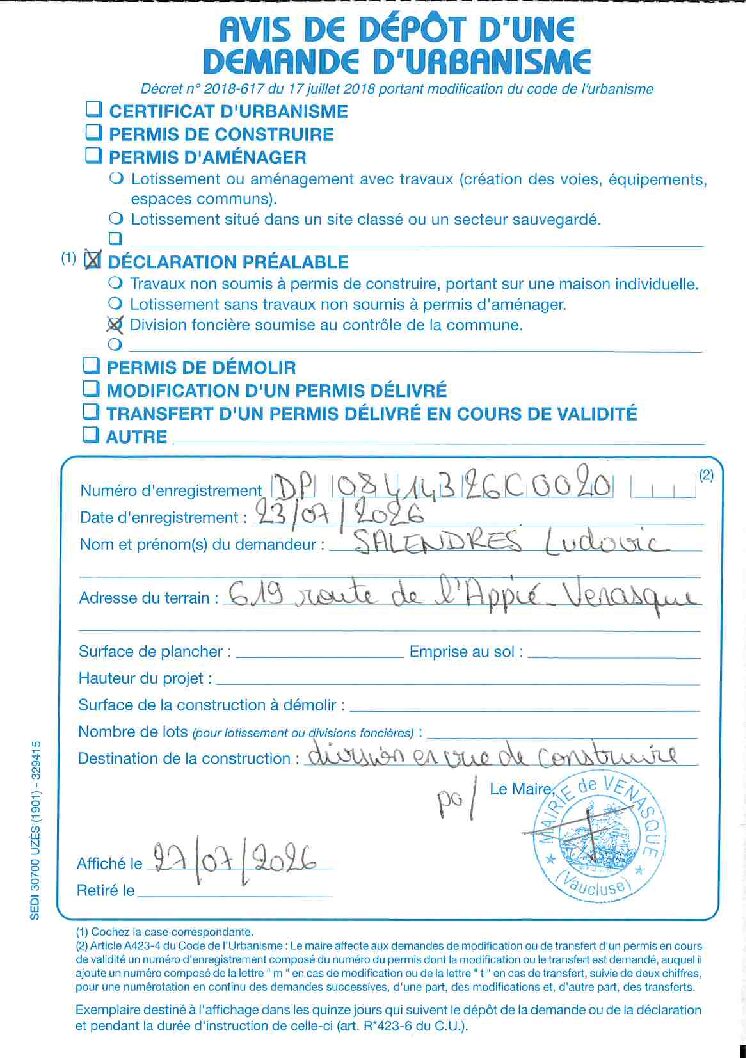 AVIS DE DÉPÔT D'UNE
DEMANDE D'URBANISME
Décret n° 2018-617 du 17 juillet 2018 portant modification du code de l'urbanisme
CERTIFICAT D'URBANISME
PERMIS DE CONSTRUIRE
PERMIS D'AMÉNAGER
Lotissement ou aménagement avec travaux (création des voies, équipements,
espaces communs).
Lotissement situé dans un site classé ou un secteur sauvegardé.
(1) DÉCLARATION PRÉALABLE
Travaux non soumis à permis de construire, portant sur une maison individuelle.
Lotissement sans travaux non soumis à permis d'aménager.
Division foncière soumise au contrôle de la commune.
PERMIS DE DÉMOLIR
MODIFICATION D'UN PERMIS DÉLIVRÉ
TRANSFERT D'UN PERMIS DÉLIVRÉ EN COURS DE VALIDITÉ
AUTRE
(2)
Numéro d'enregistrement DP 084 143 26 C 0020
Date d'enregistrement : 23/07/2026
Nom et prénom(s) du demandeur : SALENDRES Ludovic
Adresse du terrain : 619 route de l'Appié - Venasque
Surface de plancher : Emprise au sol :
Hauteur du projet :
Surface de la construction à démolir :
Nombre de lots (pour lotissement ou divisions foncières) :
Destination de la construction : division en vue de construire
po/ Le Maire,
MAIRIE de VENASQUE
(Vaucluse)
Affiché le 27/07/2026
Retiré le
SEDI 30700 UZÈS (1901) - 329415
(1) Cochez la case correspondante.
(2) Article A423-4 du Code de l'Urbanisme : Le maire affecte aux demandes de modification ou de transfert d'un permis en cours
de validité un numéro d'enregistrement composé du numéro du permis dont la modification ou le transfert est demandé, auquel il
ajoute un numéro composé de la lettre " m " en cas de modification ou de la lettre " t " en cas de transfert, suivie de deux chiffres,
pour une numérotation en continu des demandes successives, d'une part, des modifications et, d'autre part, des transferts.
Exemplaire destiné à l'affichage dans les quinze jours qui suivent le dépôt de la demande ou de la déclaration
et pendant la durée d'instruction de celle-ci (art. R*423-6 du C.U.).